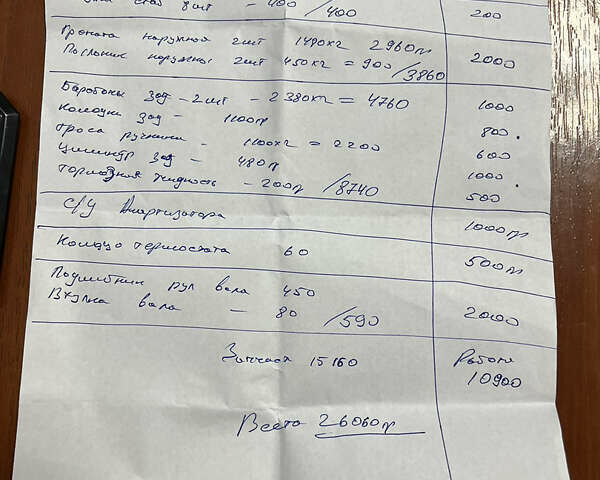 стаб 8шт - 400 /400 200
Граната наружная 2шт 1480х2 2960р 2000
Пыльник наружный 2шт 450х2 = 900 /3860
Барабаны зад - 2шт - 2380х2 = 4760 1000
Колодки зад - 1100р 800
Троса ручника - 1100х2 = 2200 600
Цилиндр зад - 480р 1000
Тормозная жидкость - 200р /8740 500
С/У Амортизатора 1000р
Кольцо термостата 60 500р
Подшибник рул вала 450 2000
Втулка вала - 80 /590
Запчася 15160 Работа
10900
Всего 26060р